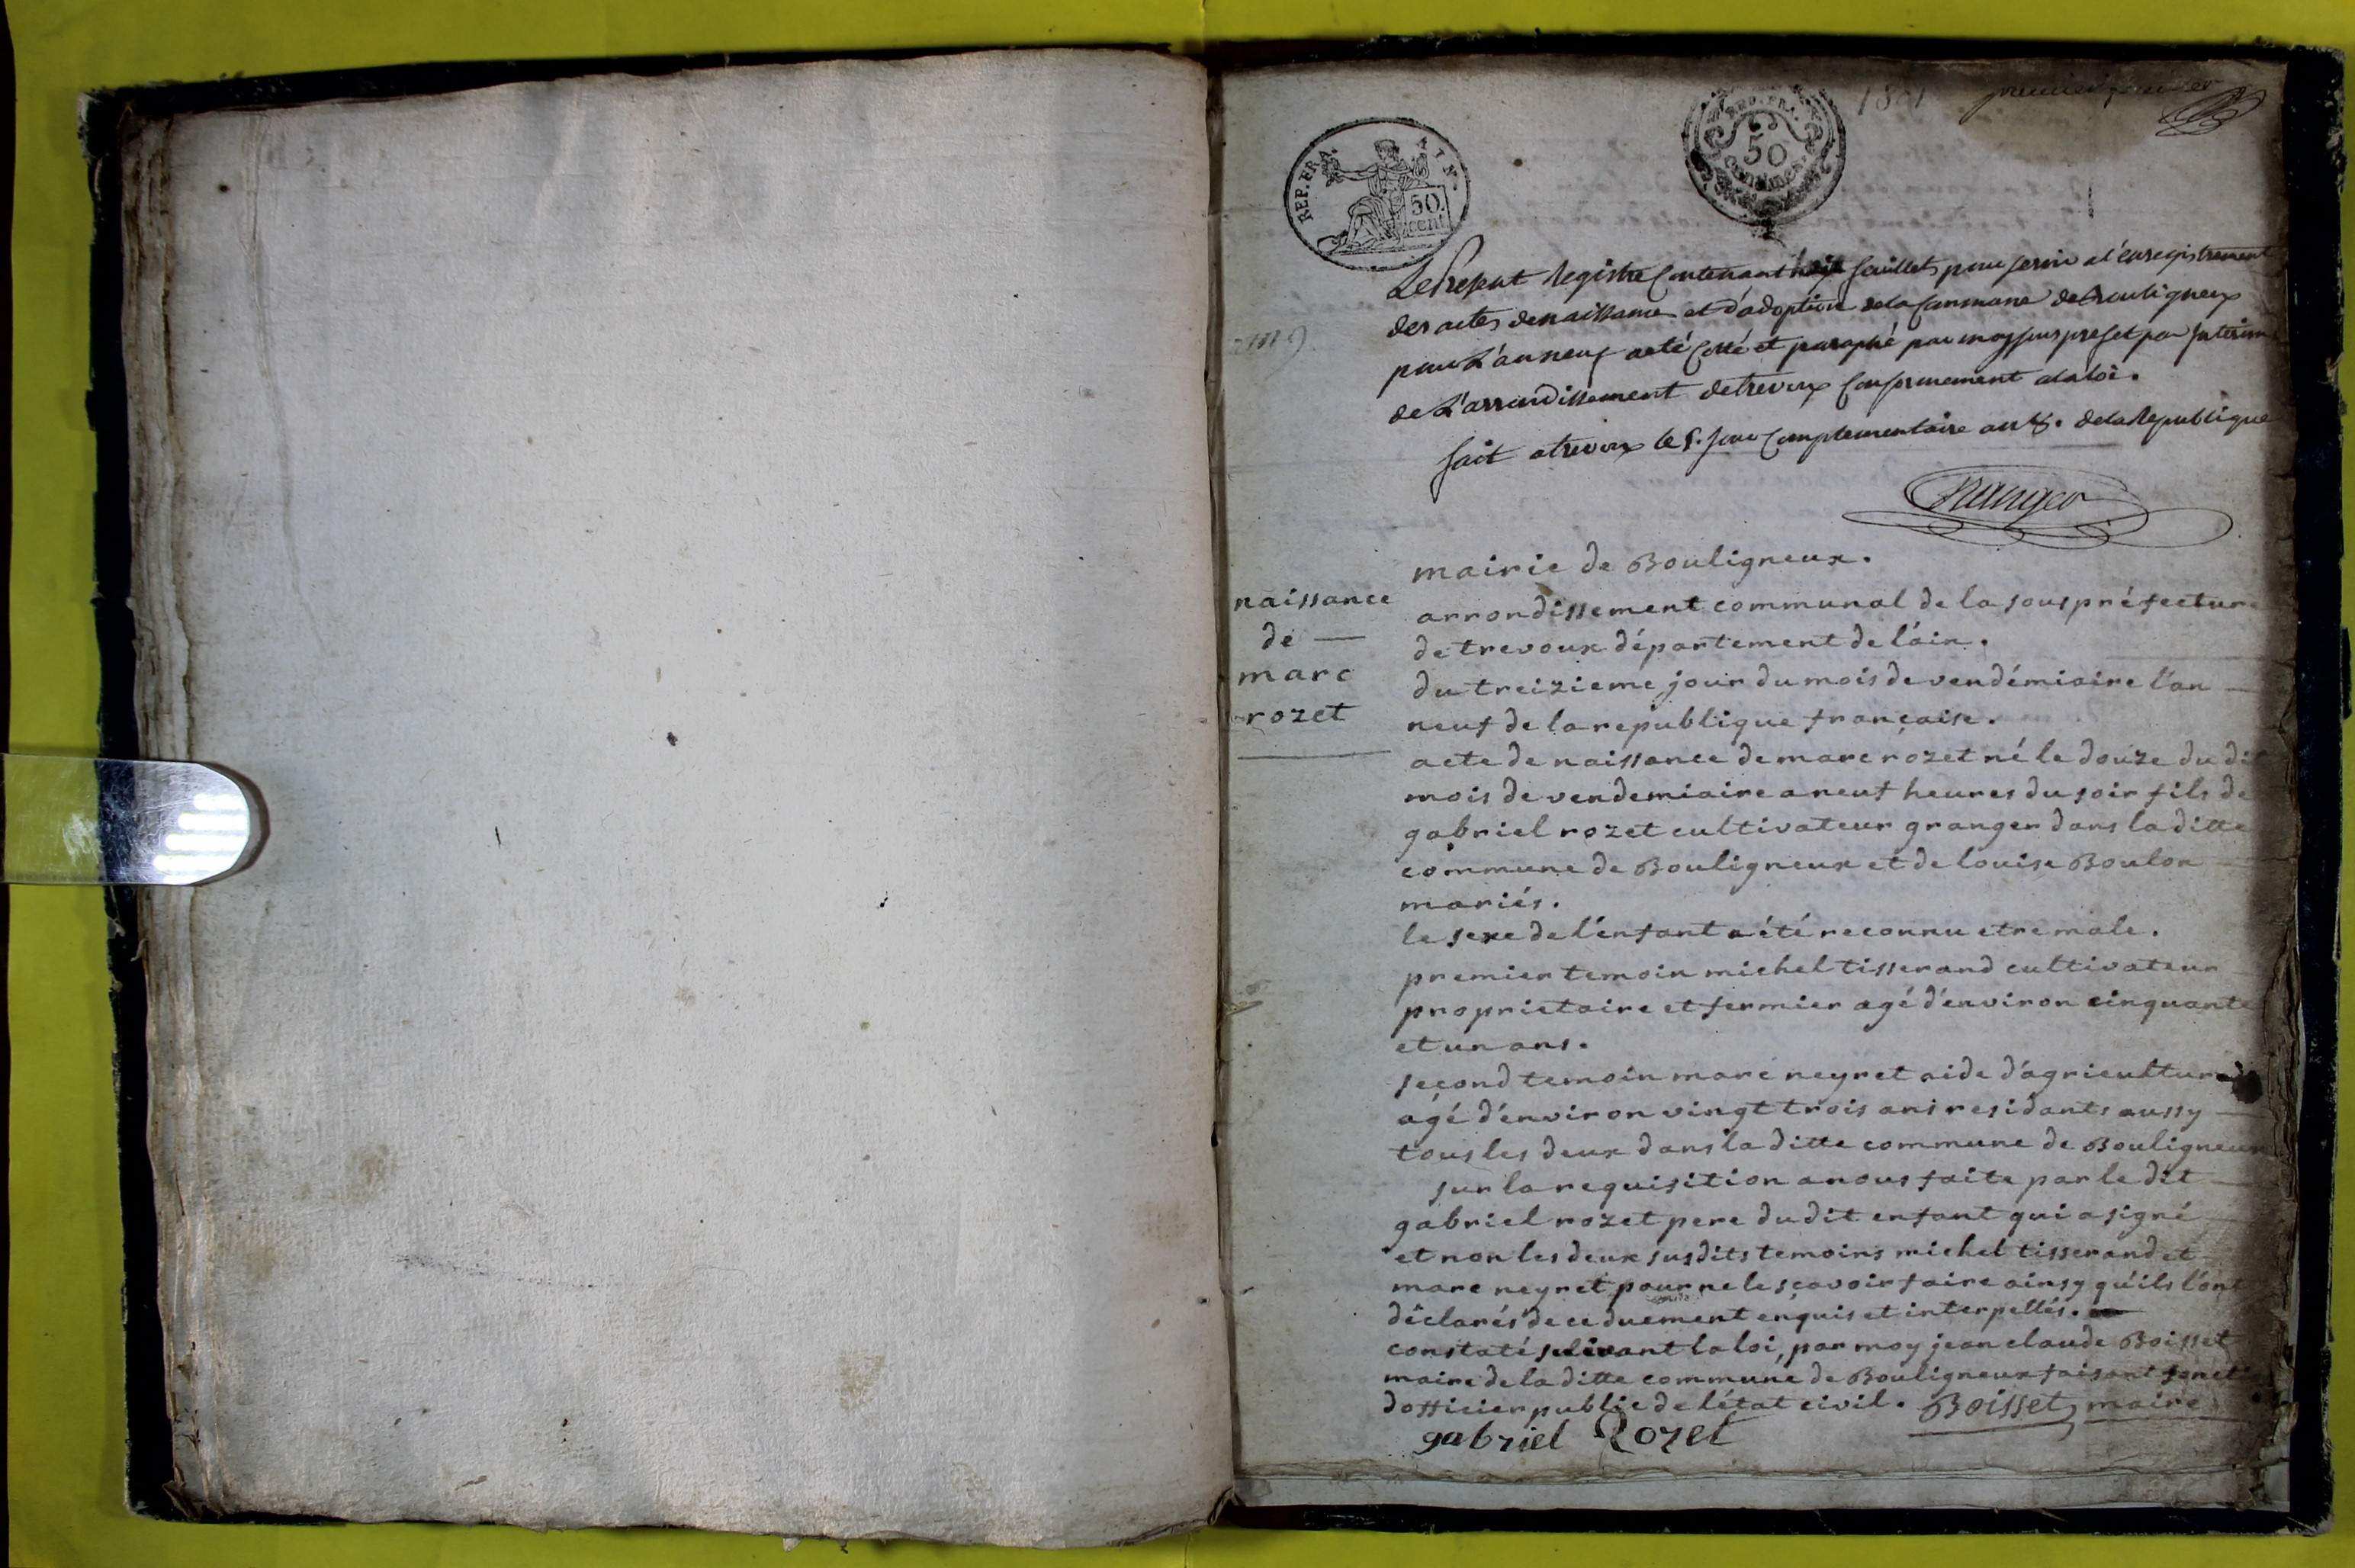 1801 premier feuillet
REP. FRA. AIN.
50 cent
REP. FR.
50
Centimes
Le present Registre Contenant feuillets pour servir a l'enregistrement
des actes de naissance et d'adoption de la Commune de Bouligneux
an 9
pour L'an neuf a eté Cotté et paraphé par moy sous prefet par Interim
de L'arrondissement de trevoux Conformement a la loi.
fait a trevoux le 5. jour Complementaire an 8. de la Republique
mairie de Bouligneux.
naissance
de
marc
rozet
arrondissement communal de la souspréfecture
de trevoux département de l'ain.
du treizieme jour du mois de vendémiaire l'an
neuf de la republique française.
acte de naissance de marc rozet né le douze du dit
mois de vendemiaire a neuf heures du soir fils de
gabriel rozet cultivateur granger dans la ditte
commune de Bouligneux et de louise Boulon
mariés.
le sexe de l'enfant a été reconnu etre male.
premier temoin michel tisserand cultivateur
proprietaire et fermier agé d'environ cinquante
et un ans.
second temoin marc neyret aide d'agriculture
agé d'environ vingt trois ans residants aussy
tous les deux dans la ditte commune de Bouligneux
sur la requisition a nous faite par le dit
gabriel rozet pere du dit enfant qui a signé
et non les deux susdits temoins michel tisserand et
marc neyret pour ne le sçavoir faire ainsy qu'ils l'ont
déclarés de ce duement enquis et interpellés.
constaté suivant la loi, par moy jean claude Boisset
maire de la ditte commune de Bouligneux faisant
d'officier public de l'état civil. Boisset maire
gabriel Rozet